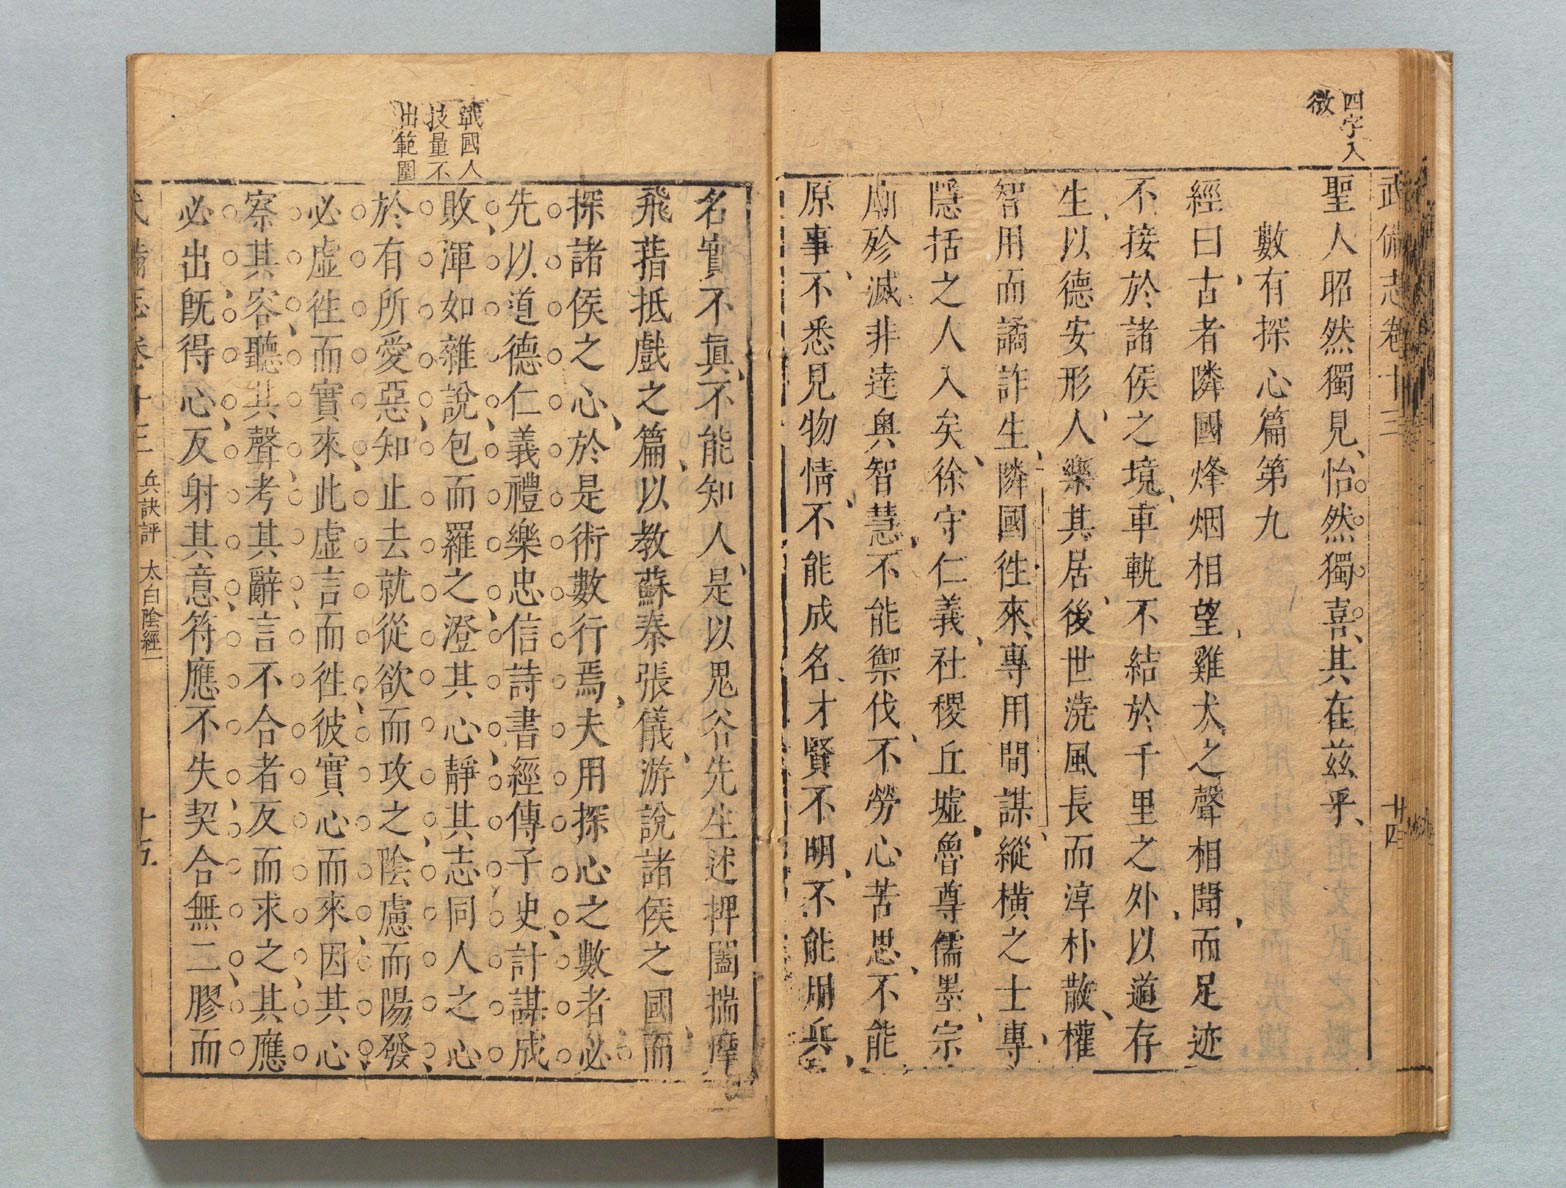 武備志卷十三
廿四
四字入
微
聖人昭然獨見怡然獨喜其在兹乎
數有探心篇第九
經曰古者隣國烽烟相望雞犬之聲相聞而足迹
不接於諸侯之境車軌不結於千里之外以道存
生以德安形人樂其居後世澆風長而淳朴散權
智用而譎詐生隣國徃來專用間謀縱横之士專
隱括之人入矣徐守仁義社稷丘墟魯尊儒墨宗
廟殄滅非逹奥智慧不能禦伐不勞心苦思不能
原事不悉見物情不能成名才賢不明不能用兵
名實不真不能知人是以鬼谷先生述捭闔揣摩
飛箝抵戲之篇以教蘇秦張儀游說諸侯之國而
探諸侯之心於是術數行焉夫用探心之數者必
先以道德仁義禮樂忠信詩書經傳子史計謀成
戰國人
技量不
出範圍
敗渾如雜說包而羅之澄其心靜其志同人之心
於有所愛惡知止去就從欲而攻之陰慮而陽發
必虛徃而實來此虛言而徃彼實心而來因其心
察其容聽其聲考其辭言不合者反而求之其應
必出既得心反射其意符應不失契合無二膠而
武備志卷十三 兵訣評 太白陰經一
十五